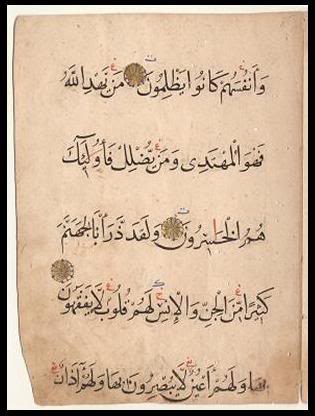 وَأَنفُسَهُمْ كَانُوا يَظْلِمُونَ مَن يَهْدِ اللَّهُ
فَهُوَ الْمُهْتَدِى وَمَن يُضْلِلْ فَأُولَٰئِكَ
هُمُ الْخَٰسِرُونَ وَلَقَدْ ذَرَأْنَا لِجَهَنَّمَ
كَثِيرًا مِّنَ الْجِنِّ وَالْإِنسِ لَهُمْ قُلُوبٌ لَّا يَفْقَهُونَ
بِهَا وَلَهُمْ أَعْيُنٌ لَّا يُبْصِرُونَ بِهَا وَلَهُمْ آذَانٌ